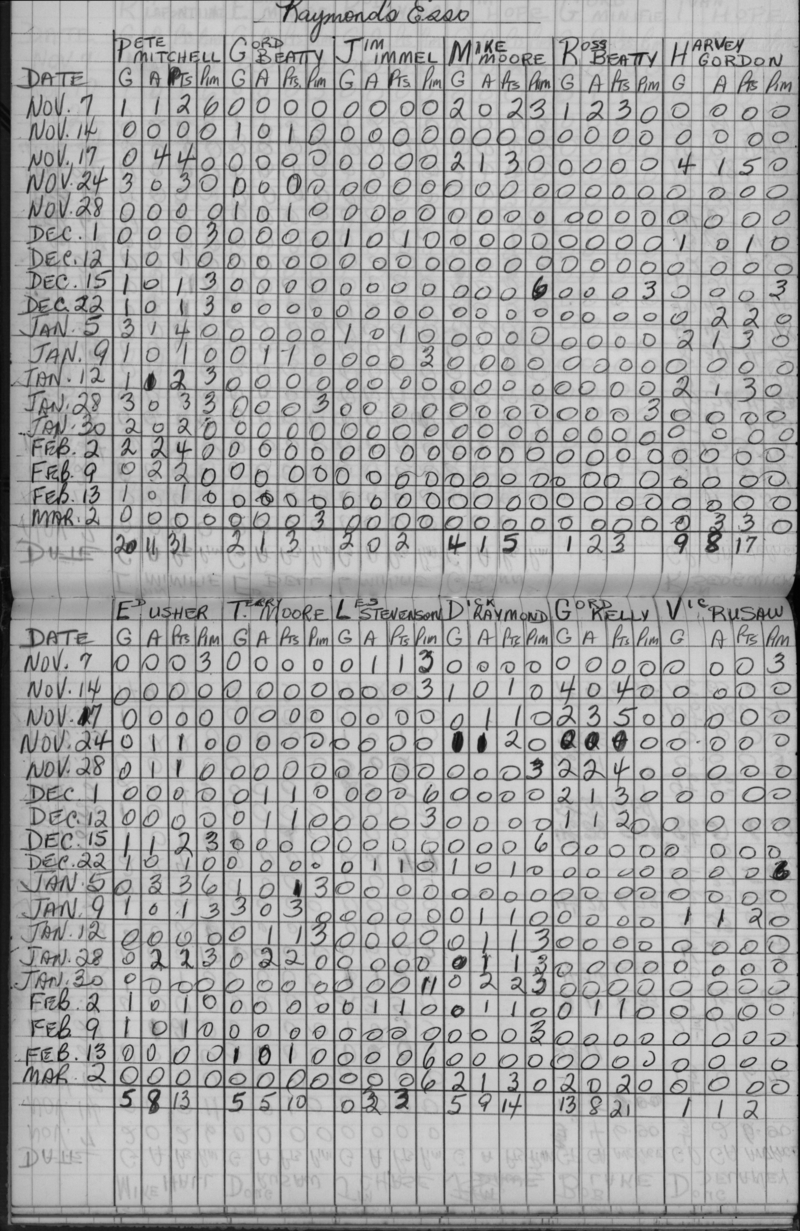 Raymond's Esso
PETE MITCHELL GORD BEATTY JIM IMMEL MIKE MOORE ROSS BEATTY HARVEY GORDON
DATE G A Pts Pim G A Pts Pim G A Pts Pim G A Pts Pim G A Pts Pim G A Pts Pim
NOV. 7 1 1 2 6 0 0 0 0 0 0 0 0 2 0 2 3 1 2 3 0 0 0 0 0
NOV. 14 0 0 0 0 1 0 1 0 0 0 0 0 0 0 0 0 0 0 0 0 0 0 0 0
NOV. 17 0 4 4 0 0 0 0 0 0 0 0 0 2 1 3 0 0 0 0 0 4 1 5 0
NOV. 24 3 0 3 0 0 0 0 0 0 0 0 0 0 0 0 0 0 0 0 0 0 0 0 0
NOV. 28 0 0 0 0 1 0 1 0 0 0 0 0 0 0 0 0 0 0 0 0 0 0 0 0
DEC. 1 0 0 0 3 0 0 0 0 1 0 1 0 0 0 0 0 0 0 0 0 1 0 1 0
DEC. 12 1 0 1 0 0 0 0 0 0 0 0 0 0 0 0 0 0 0 0 0 0 0 0 0
DEC. 15 1 0 1 3 0 0 0 0 0 0 0 0 0 0 0 6 0 0 0 3 0 0 0 3
DEC. 22 1 0 1 3 0 0 0 0 0 0 0 0 0 0 0 0 0 0 0 0 0 2 2 0
JAN. 5 3 1 4 0 0 0 0 0 1 0 1 0 0 0 0 0 0 0 0 0 2 1 3 0
JAN. 9 1 0 1 0 0 1 1 0 0 0 0 3 0 0 0 0 0 0 0 0 0 0 0 0
JAN. 12 1 1 2 3 0 0 0 0 0 0 0 0 0 0 0 0 0 0 0 0 2 1 3 0
JAN. 28 3 0 3 3 0 0 0 3 0 0 0 0 0 0 0 0 0 0 0 3 0 0 0 0
JAN. 30 2 0 2 0 0 0 0 0 0 0 0 0 0 0 0 0 0 0 0 0 0 0 0 0
FEB. 2 2 2 4 0 0 0 0 0 0 0 0 0 0 0 0 0 0 0 0 0 0 0 0 0
FEB. 9 0 2 2 0 0 0 0 0 0 0 0 0 0 0 0 0 0 0 0 0 0 0 0 0
FEB. 13 1 0 1 0 0 0 0 0 0 0 0 0 0 0 0 0 0 0 0 0 0 0 0 0
MAR. 2 0 0 0 0 0 0 0 3 0 0 0 0 0 0 0 0 0 0 0 0 0 3 3 0
20 11 31 2 1 3 2 0 2 4 1 5 1 2 3 9 8 17
ED USHER TERRY MOORE LES STEVENSON DICK RAYMOND GORD KELLY VIC RUSAW
DATE G A Pts Pim G A Pts Pim G A Pts Pim G A Pts Pim G A Pts Pim G A Pts Pim
NOV. 7 0 0 0 3 0 0 0 0 0 1 1 3 0 0 0 0 0 0 0 0 0 0 0 3
NOV. 14 0 0 0 0 0 0 0 0 0 0 0 3 1 0 1 0 4 0 4 0 0 0 0 0
NOV. 17 0 0 0 0 0 0 0 0 0 0 0 0 0 1 1 0 2 3 5 0 0 0 0 0
NOV. 24 0 1 1 0 0 0 0 0 0 0 0 0 1 1 2 0 0 0 0 0 0 0 0 0
NOV. 28 0 1 1 0 0 0 0 0 0 0 0 0 0 0 0 3 2 2 4 0 0 0 0 0
DEC 1 0 0 0 0 0 1 1 0 0 0 0 6 0 0 0 0 2 1 3 0 0 0 0 0
DEC. 12 0 0 0 0 0 1 1 0 0 0 0 3 0 0 0 0 1 1 2 0 0 0 0 0
DEC. 15 1 1 2 3 0 0 0 0 0 0 0 0 0 0 0 6 0 0 0 0 0 0 0 0
DEC. 22 1 0 1 0 0 0 0 0 0 1 1 0 1 0 1 0 0 0 0 0 0 0 0 6
JAN. 5 0 3 3 6 1 0 1 3 0 0 0 0 0 0 0 0 0 0 0 0 0 0 0 0
JAN. 9 1 0 1 3 3 0 3 0 0 0 0 0 0 1 1 0 0 0 0 0 1 1 2 0
JAN. 12 0 0 0 0 0 1 1 3 0 0 0 0 0 1 1 3 0 0 0 0 0 0 0 0
JAN. 28 0 2 2 3 0 2 2 0 0 0 0 0 0 1 1 3 0 0 0 0 0 0 0 0
JAN. 30 0 0 0 0 0 0 0 0 0 0 0 11 0 2 2 3 0 0 0 0 0 0 0 0
FEB. 2 1 0 1 0 0 0 0 0 0 1 1 0 0 1 1 0 0 1 1 0 0 0 0 0
FEB 9 1 0 1 0 0 0 0 0 0 0 0 0 0 0 0 3 0 0 0 0 0 0 0 0
FEB. 13 0 0 0 0 1 0 1 0 0 0 0 6 0 0 0 0 0 0 0 0 0 0 0 0
MAR. 2 0 0 0 0 0 0 0 0 0 0 0 6 2 1 3 0 2 0 2 0 0 0 0 0
5 8 13 5 5 10 0 3 3 5 9 14 13 8 21 1 1 2